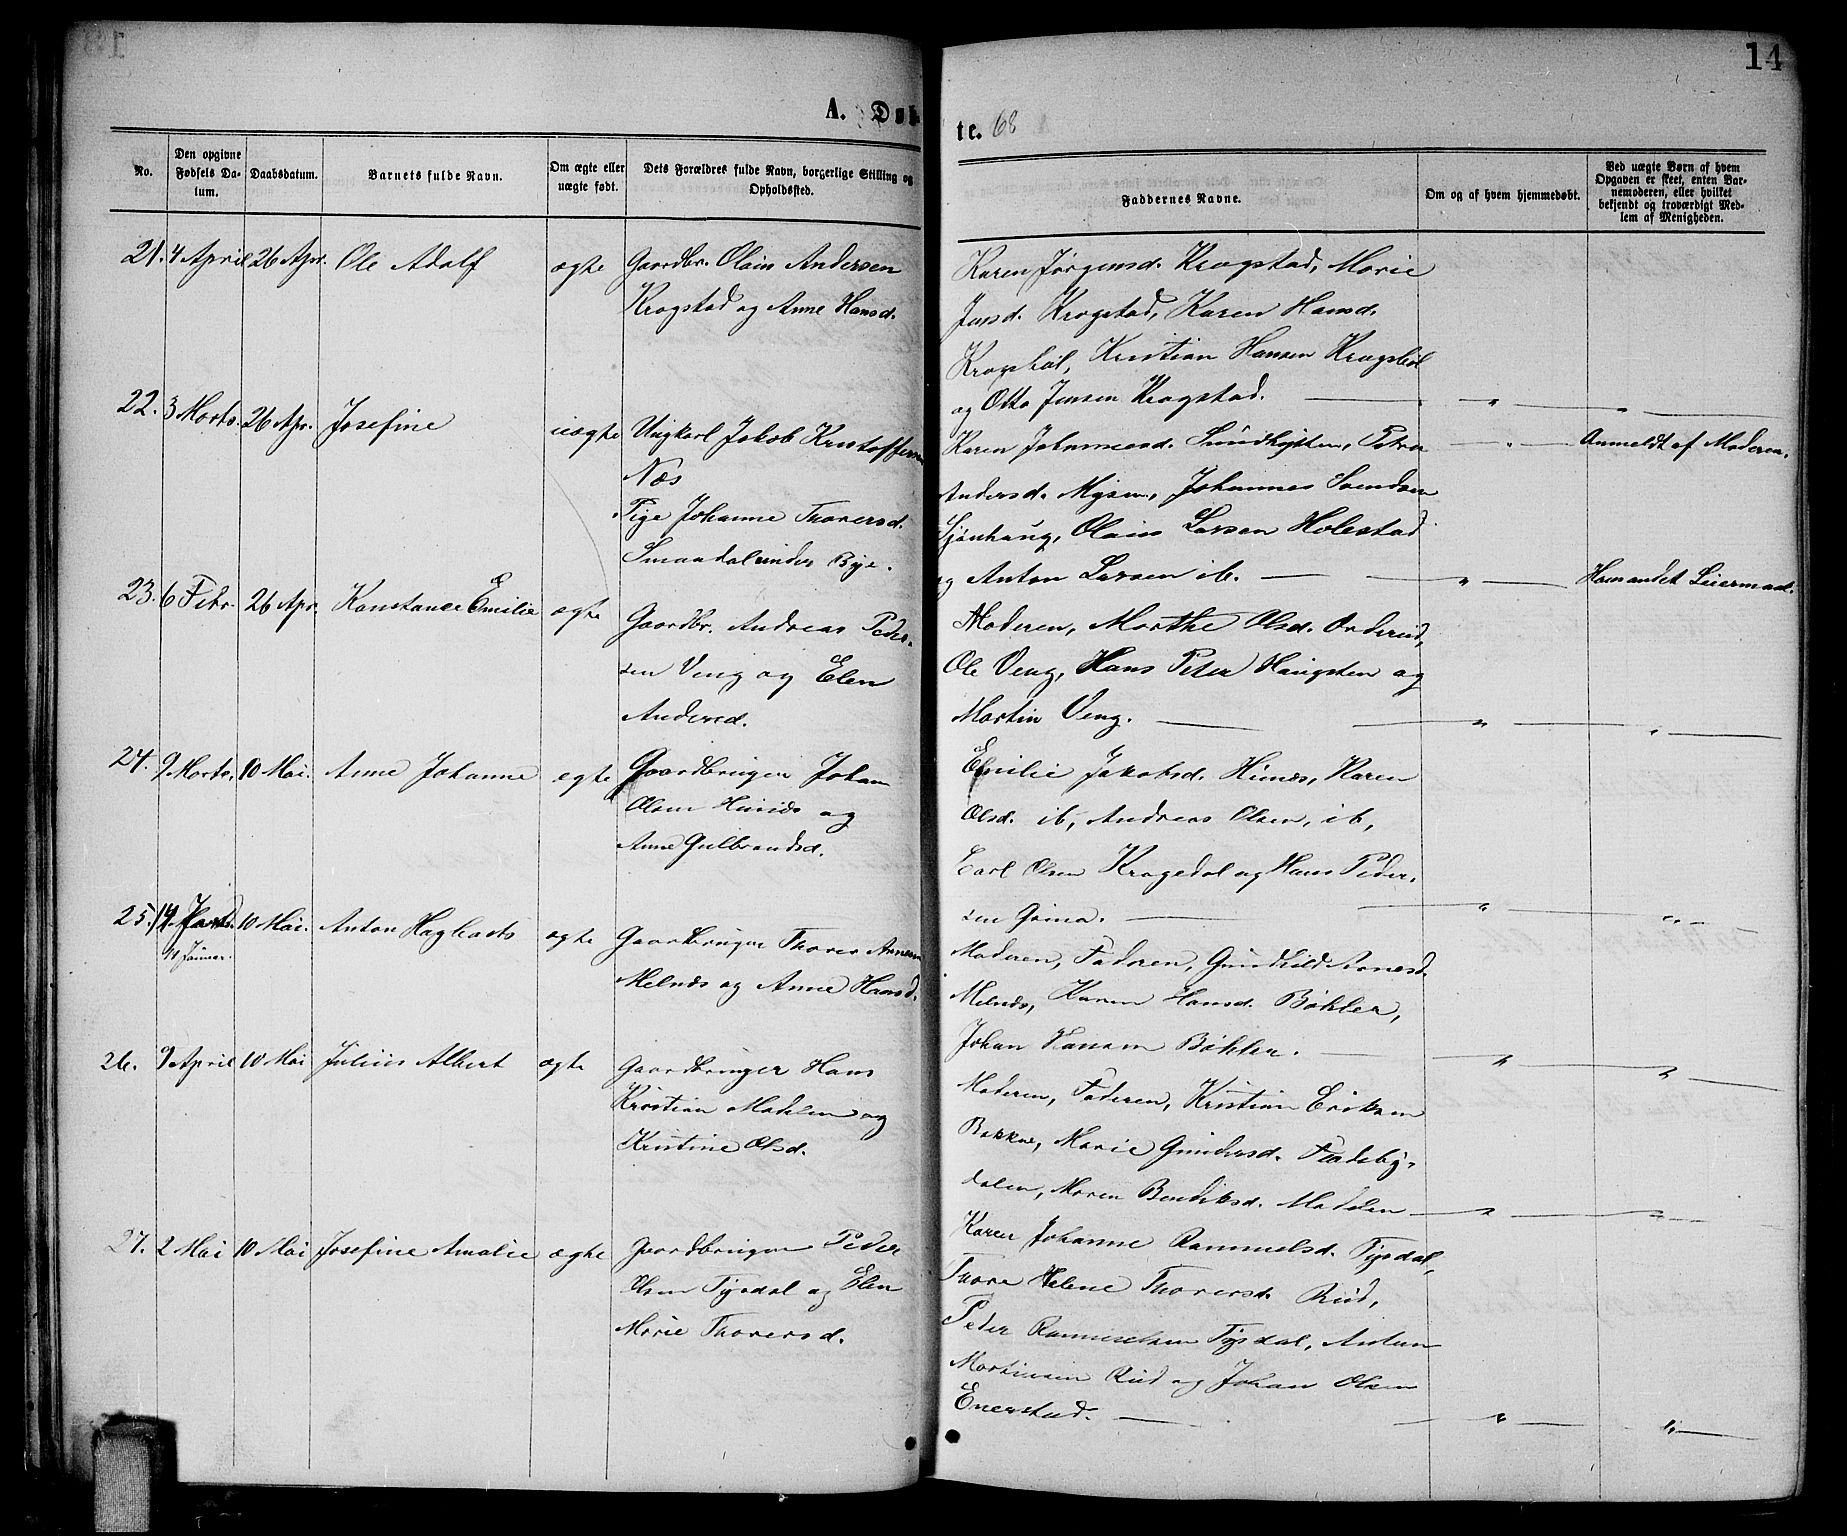 14
A. Døb
te. 68
No.
Den opgivne Fødsels Da-
tum.
Daabsdatum.
Barnets fulde Navn.
Om ægte eller
uægte født.
Dets Forældres fulde Navn, borgerlige Stilling og
Opholdssted.
Faddernes Navne.
Om og af hvem hjemmedøbt.
Ved uægte Børn af hvem
Opgaven er skeet, enten Bar-
nemoderen, eller hvilket
bekjendt og troværdigt Med-
lem af Menigheden.
21. 4 April 26 Apr. Ole Adolf ægte Gaardbr. Olaus Andersen
Krogstad og Anne Hansd.
Karen Jørgensd. Krogstad, Marie
Jensd. Krogstad, Karen Hansd.
Krogsbøl, Kristian Hansen Krogsbøl
og Otto Jensen Krogstad. — " — " —
22. 3 Marts. 26 Apr. Josefine uægte Ungkarl Jakob Kristoffersen
Næs
Pige Johanne Thorersd.
Smaadal under Bye.
Karen Johannesd. Petra — " — Anmeldt af Moderen.
Andersd. Mysen, Johannes Svendsen
Sjønhaug, Olaus Larsen Holestad
og Anton Larsen ib. — " — Hans andet Leiermaal.
23. 6 Febr. 26 Apr. Konstance Emilie ægte Gaardbr. Andreas Peder-
sen Veng og Elen
Andersd.
Moderen, Marthe Olsd. Orderud,
Ole Veng, Hans Peter Haugsten og
Martin Veng. — " — " —
24. 9 Marts. 10 Mai. Anne Johanne ægte Gaardbruger Johan
Olsen Himnæs og
Anne Gulbrandsd.
Emilie Jakobsd. Himnæs, Karen
Olsd. ib, Andreas Olsen, ib,
Carl Olsen Kragedal og Hans Peder-
sen — " — " —
25. 14 10 Mai. Anton Hagbarts ægte Gaardbruger Thorer Arnesen
11 Januar.
Melnæs og Anne Hansd.
Moderen, Faderen, Gundhild Arnesd.
Melnæs, Karen Hansd. Bøhler,
Johan Hansen Bøhler. — " — " —
26. 9 April 10 Mai Julius Albert ægte Gaardbruger Hans
Kristian Madslen og
Kristine Olsd.
Moderen, Faderen, Kristian Eriksen
Bakkne, Marie Gundersd. Fladeby-
dalen, Maren Bendiksd. Madslen — " — " —
27. 2 Mai 10 Mai Josefine Amalie ægte Gaardbruger Peder
Olsen Tysdal og Elen
Marie Thorersd.
Karen Johanne Rammelsd. Tysdal,
Thora Helene Thorersd. Rud,
Peder Tysdal, Anton
Martinsen Rud og Johan Olsen
Enerstad. — " — " —